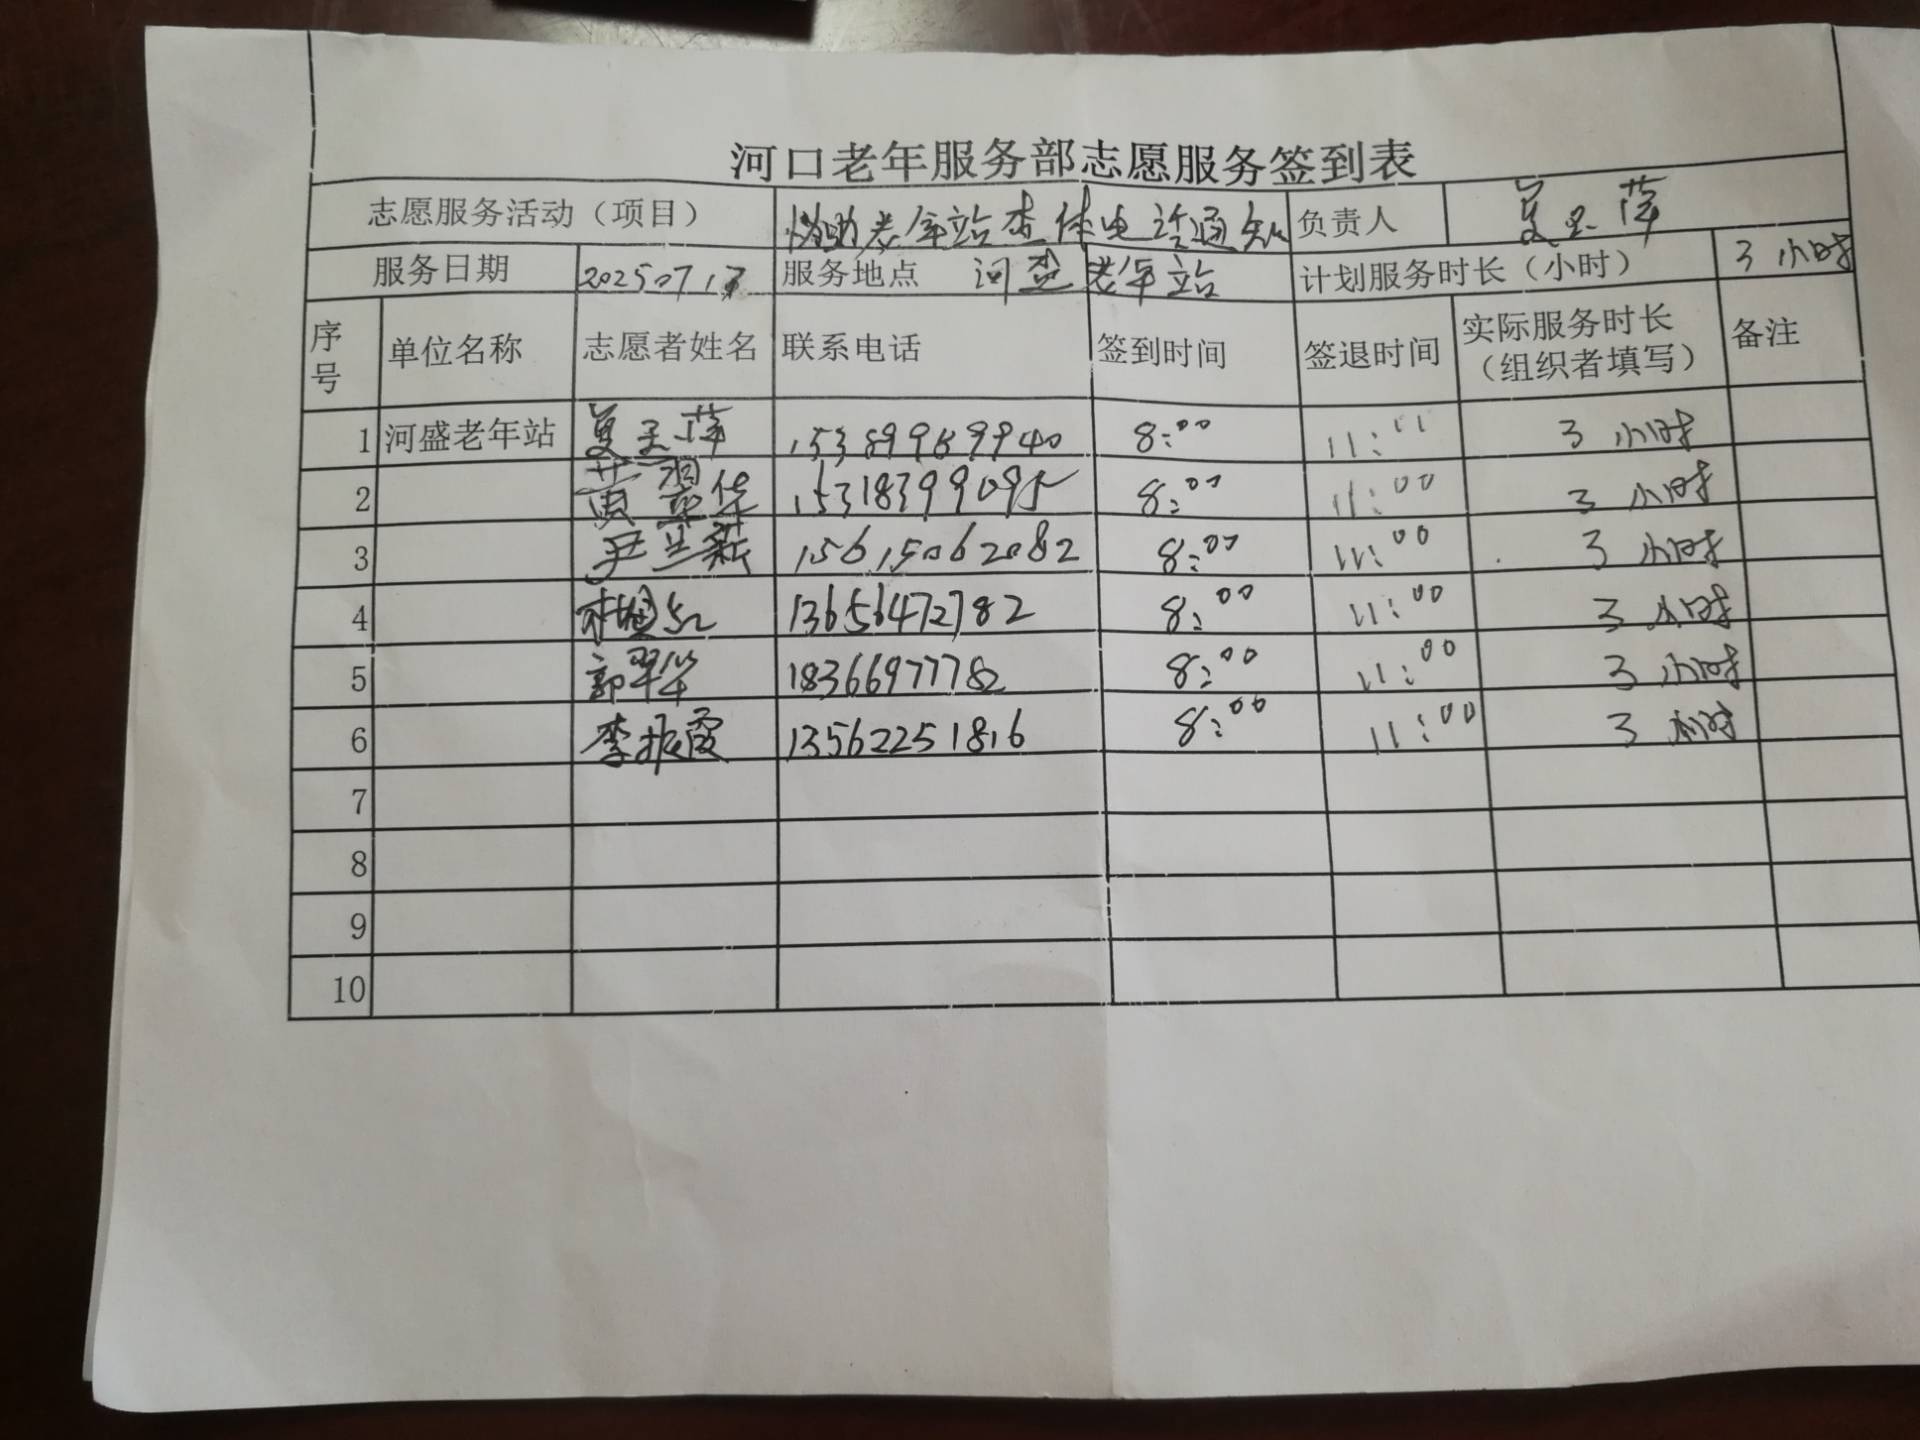 河口老年服务部志愿服务签到表
志愿服务活动（项目） 协助老年站查体电话通知 负责人 夏玉萍
服务日期 20250717 服务地点 河盛老年站 计划服务时长（小时） 3小时
序号 单位名称 志愿者姓名 联系电话 签到时间 签退时间 实际服务时长（组织者填写） 备注
1 河盛老年站 夏玉萍 8:00 3小时
2 黄翠华 15318399095 8:00 11:00 3小时
3 尹兰 15615062082 8:00 11:00 3小时
4 13656472782 8:00 11:00 3小时
5 郭翠华 18366977782 8:00 11:00 3小时
6 李振霞 13562251816 8:00 11:00 3小时
7
8
9
10